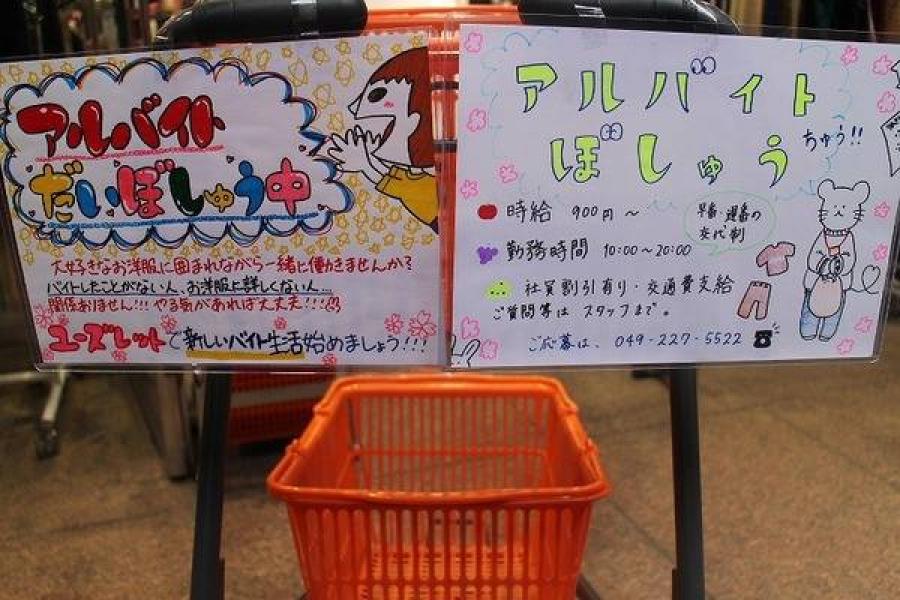 アルバイト
だいぼしゅう中
大好きなお洋服に囲まれながら一緒に働きませんか?
バイトしたことがない人、お洋服に詳しくない人…
関係ありません!!! やる気があれば大丈夫!!!
ユーズレットで新しいバイト生活始めましょう!!!
アルバイト
ぼしゅう
ちゅう!!
時給 900円~
早番・遅番の
交代制
勤務時間 10:00~20:00
社員割引有り・交通費支給
ご質問等は スタッフまで。
ご応募は、049-227-5522